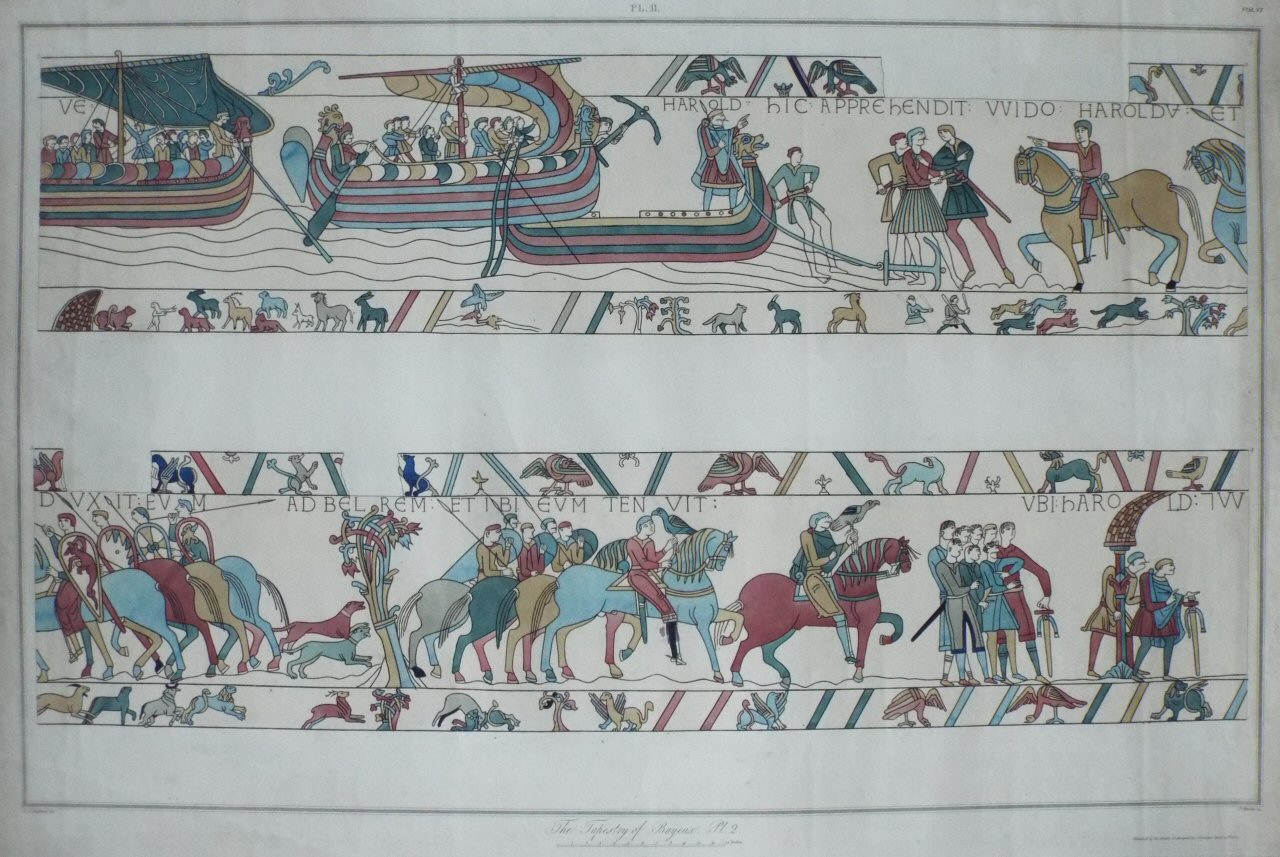 PL. II.
VOL. VI
VE
HAROLD: hIC: APPREhENDIT: VVIDO: HAROLDV: ET
DVXIT: EVM AD BELREM: ET IBI EVM TENVIT:
VBI: hAROLD: 7 VV
The Tapestry of Bayeux. Pl. 2.